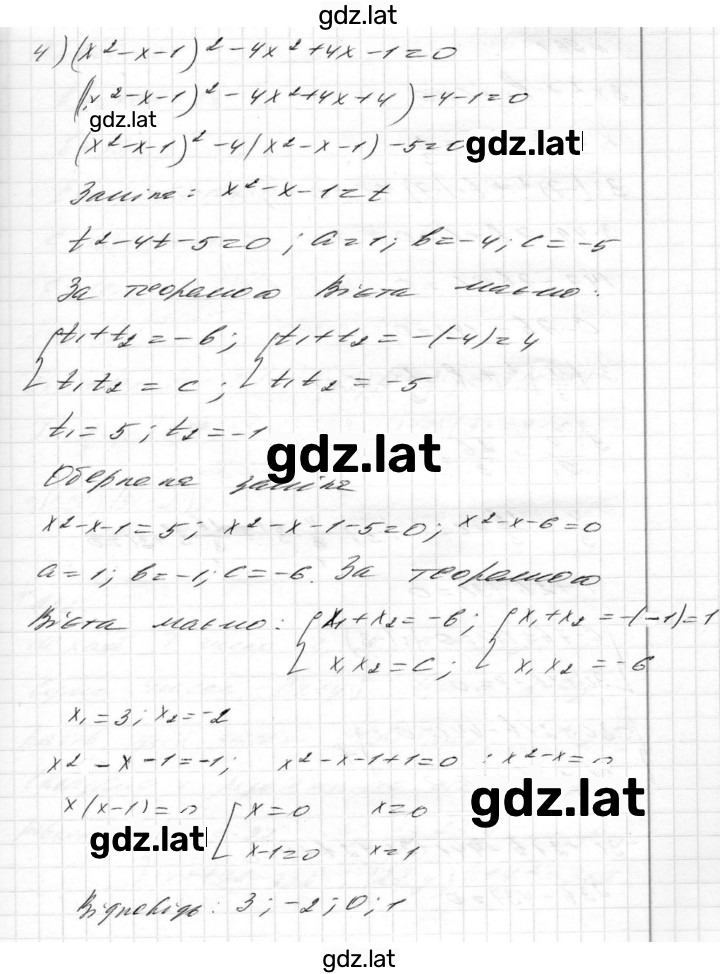 gdz.lat
4) (x² - x - 1)² - 4x² + 4x - 1 = 0
((x² - x - 1)² - 4x² + 4x + 4) - 4 - 1 = 0
gdz.lat
(x² - x - 1)² - 4(x² - x - 1) - 5 = 0
gdz.lat
Заміна: x² - x - 1 = t
t² - 4t - 5 = 0; a = 1; b = -4; c = -5
За теоремою Вієта маємо:
{ t₁ + t₂ = -b; { t₁ + t₂ = -(-4) = 4
t₁t₂ = c; t₁t₂ = -5
t₁ = 5; t₂ = -1
gdz.lat
Обернена заміна
x² - x - 1 = 5; x² - x - 1 - 5 = 0; x² - x - 6 = 0
a = 1; b = -1; c = -6. За теоремою
Вієта маємо: { x₁ + x₂ = -b; { x₁ + x₂ = -(-1) = 1
x₁x₂ = c; x₁x₂ = -6
x₁ = 3; x₂ = -2
x² - x - 1 = -1; x² - x - 1 + 1 = 0; x² - x = 0
gdz.lat
x(x - 1) = 0 [ x = 0 x = 0
gdz.lat
x - 1 = 0 x = 1
Відповідь: 3; -2; 0; 1
gdz.lat